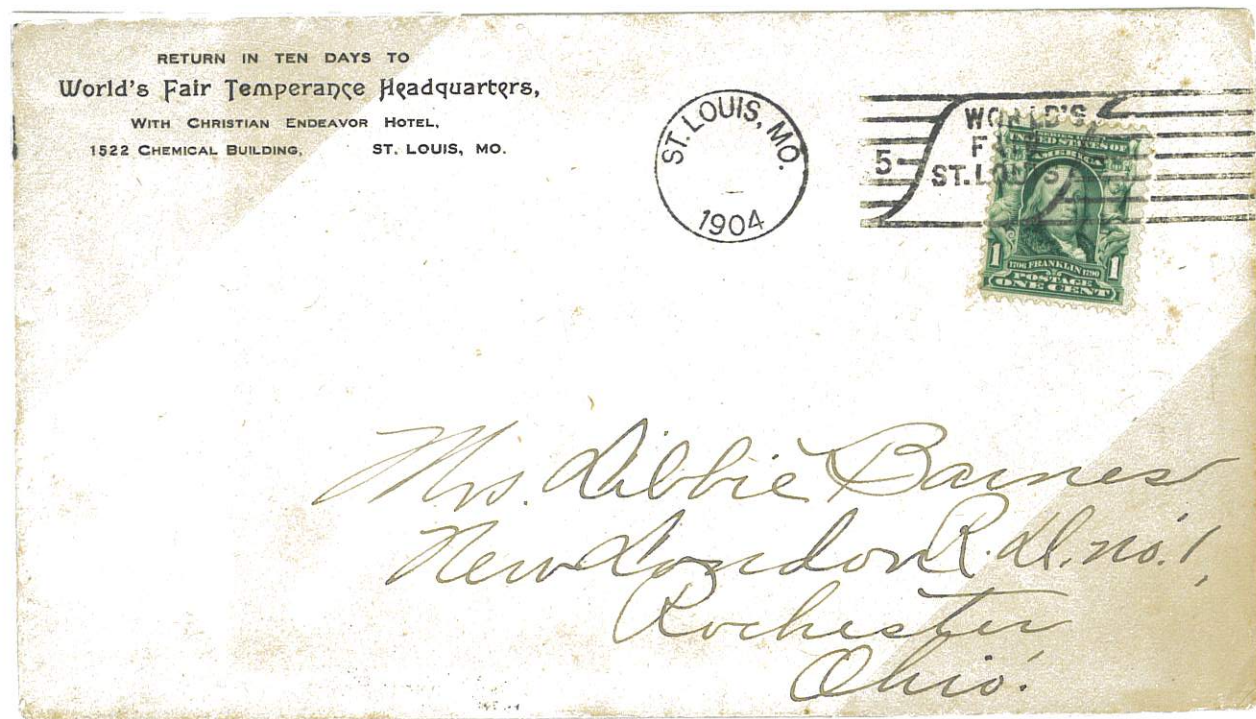 RETURN IN TEN DAYS TO
World's Fair Temperance Headquarters,
WITH CHRISTIAN ENDEAVOR HOTEL,
1522 CHEMICAL BUILDING, ST. LOUIS, MO.
ST. LOUIS, MO.
1904
5
WORLD'S
FAIR
ST. LOUIS
UNITED STATES OF
AMERICA
1 1706 FRANKLIN 1790 1
POSTAGE
ONE CENT
Mrs. Libbie Barnes
New London R. D. no. 1,
Rochester
Ohio.